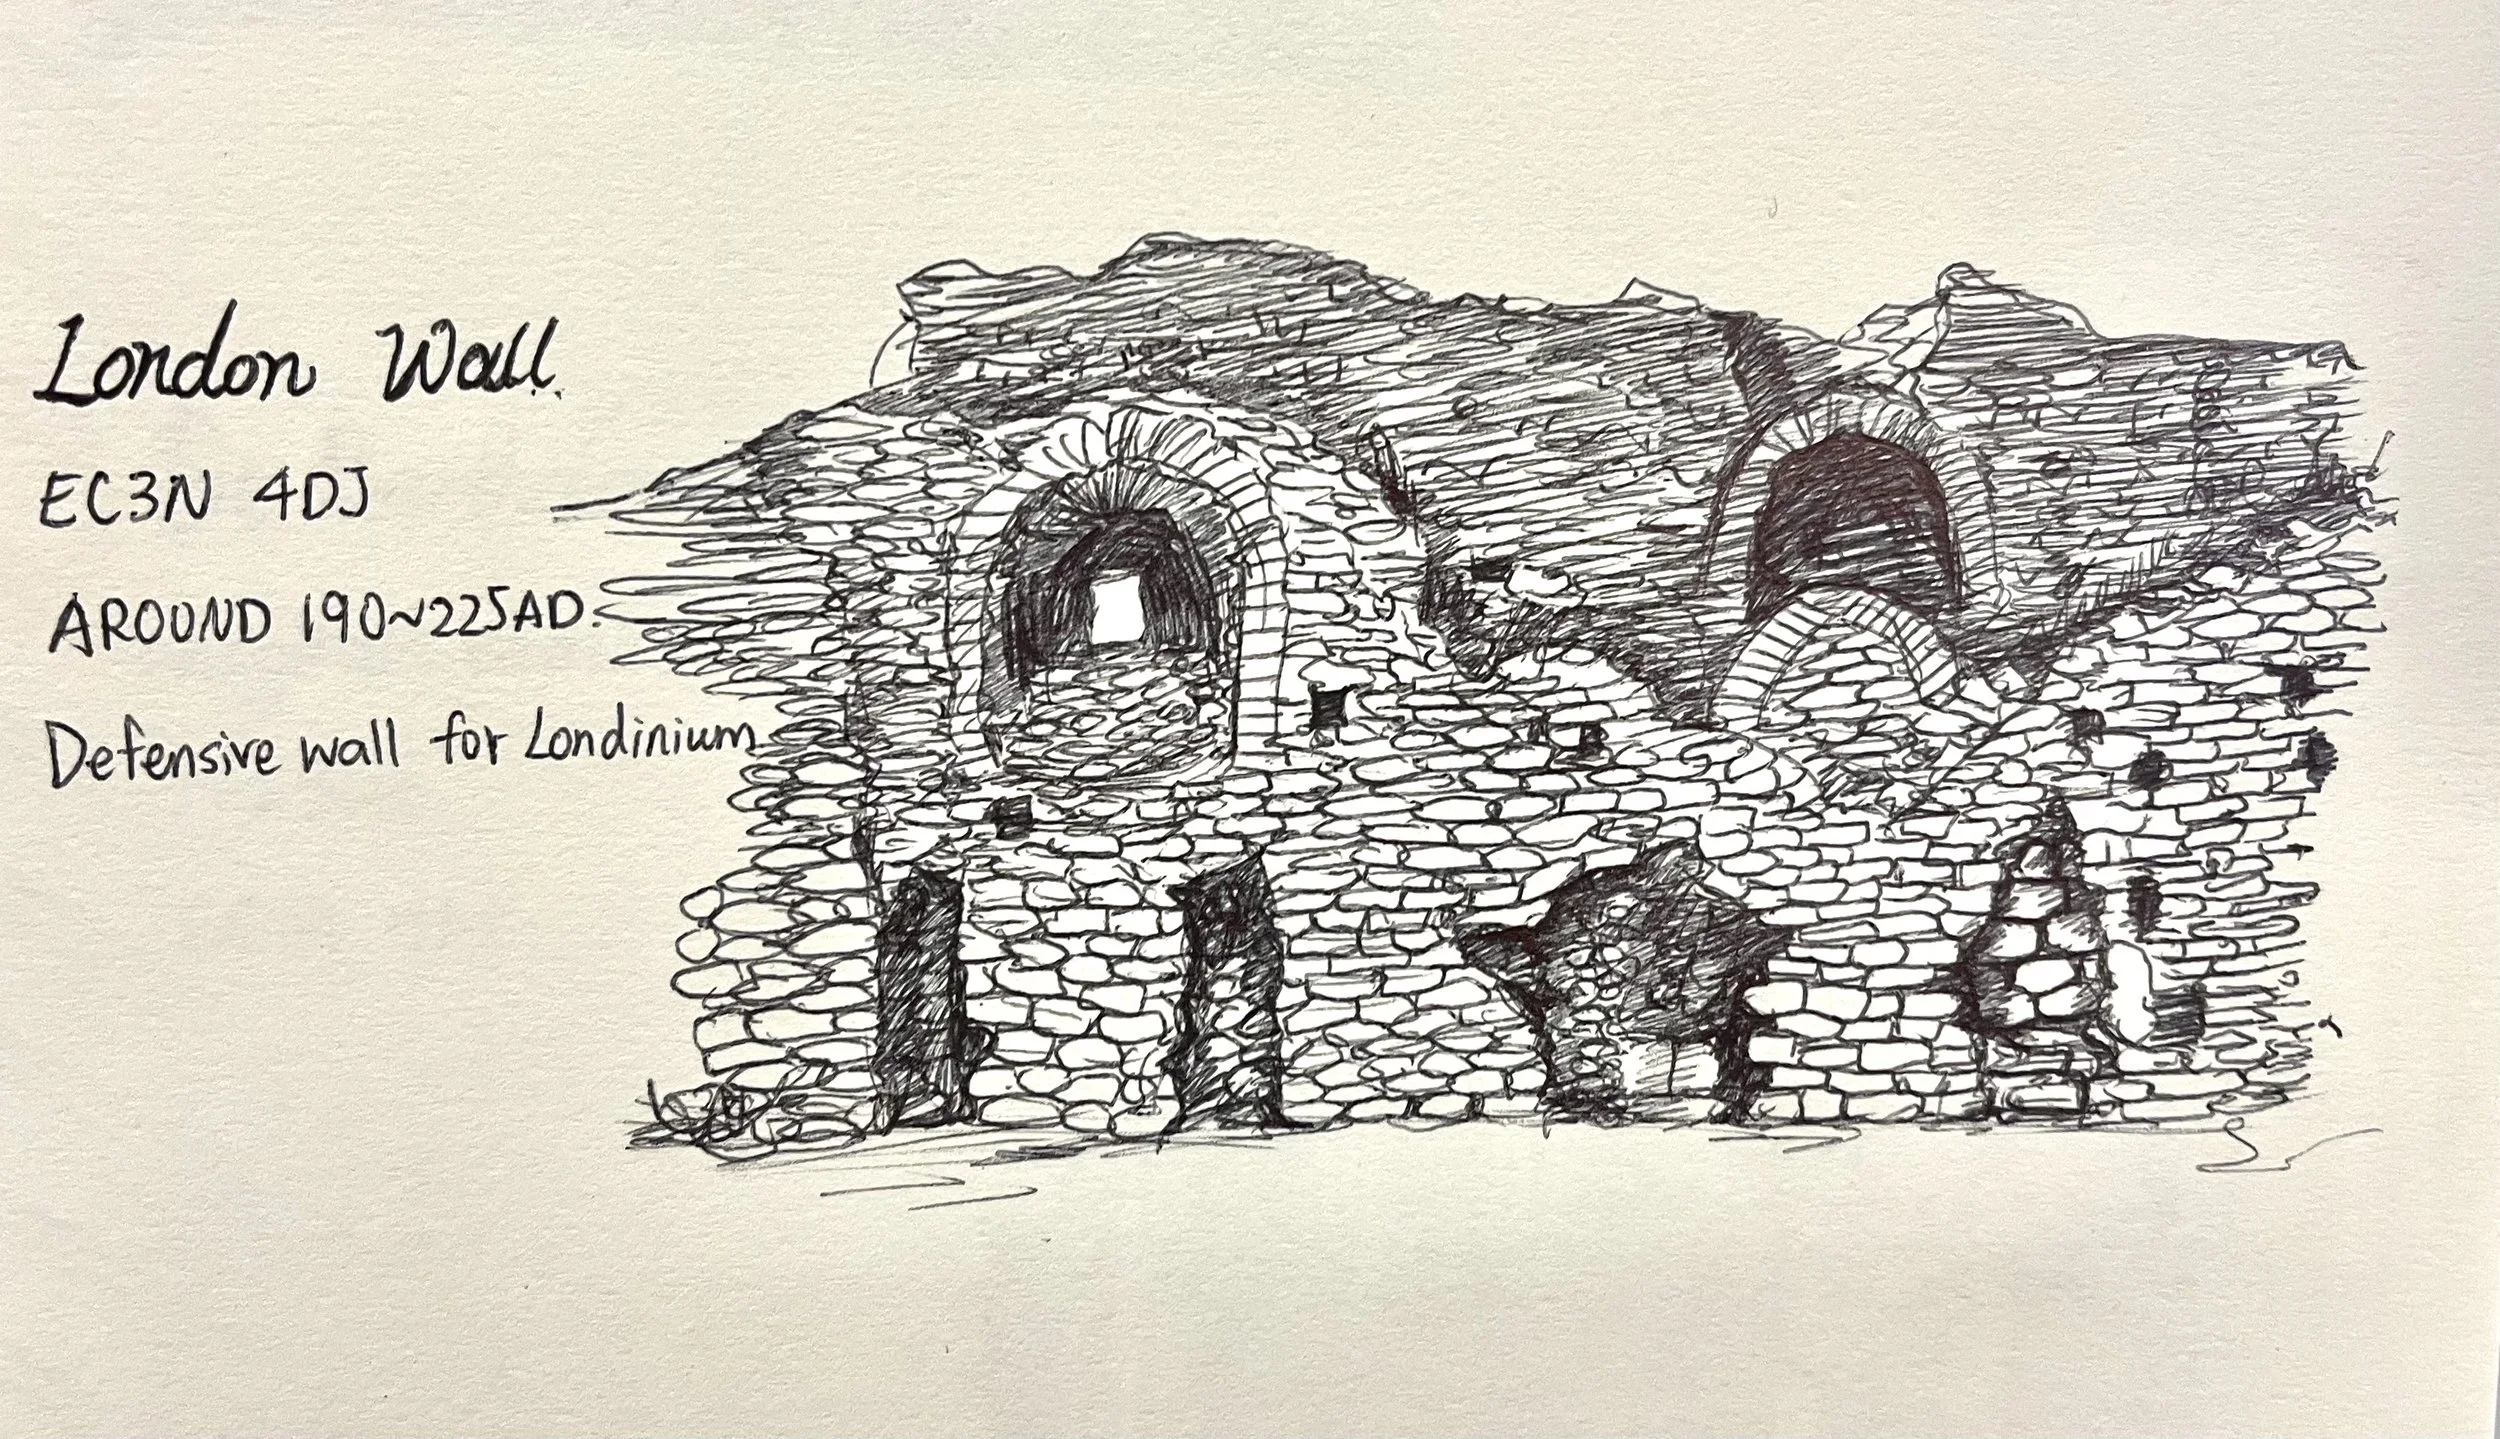 London Wall.
EC3N 4DJ
AROUND 190~225AD.
Defensive wall for Londinium